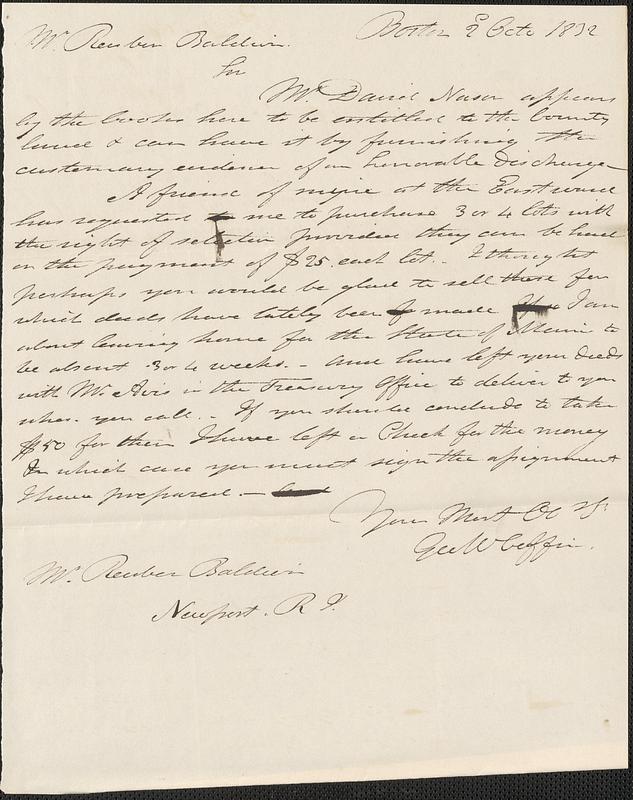 Boston 2 Octo 1832
Mr. Reuben Baldwin.
Sir
Mr. David Nason appears
by the books here to be entitled to the bounty
land & can have it by furnishing the
customary evidence of an honorable Discharge
A friend of mine at the Eastward
has requested me to purchase 3 or 4 lots with
the right of selection provided they can be had
on the payment of $25. each lot. I thought
perhaps you would be glad to sell those for
which deeds have lately been made I am
about leaving home for the State of Maine to
be absent 3 or 4 weeks. - and have left your Deeds
with Mr. in the Treasury Office to deliver to you
when you call. - If you should conclude to take
$50 for them I have left a Check for the money
In which case you must sign the assignment
I have prepared -
Your Most Ob St.
Geo W Coffin.
Mr. Reuben Baldwin
Newport. R I.